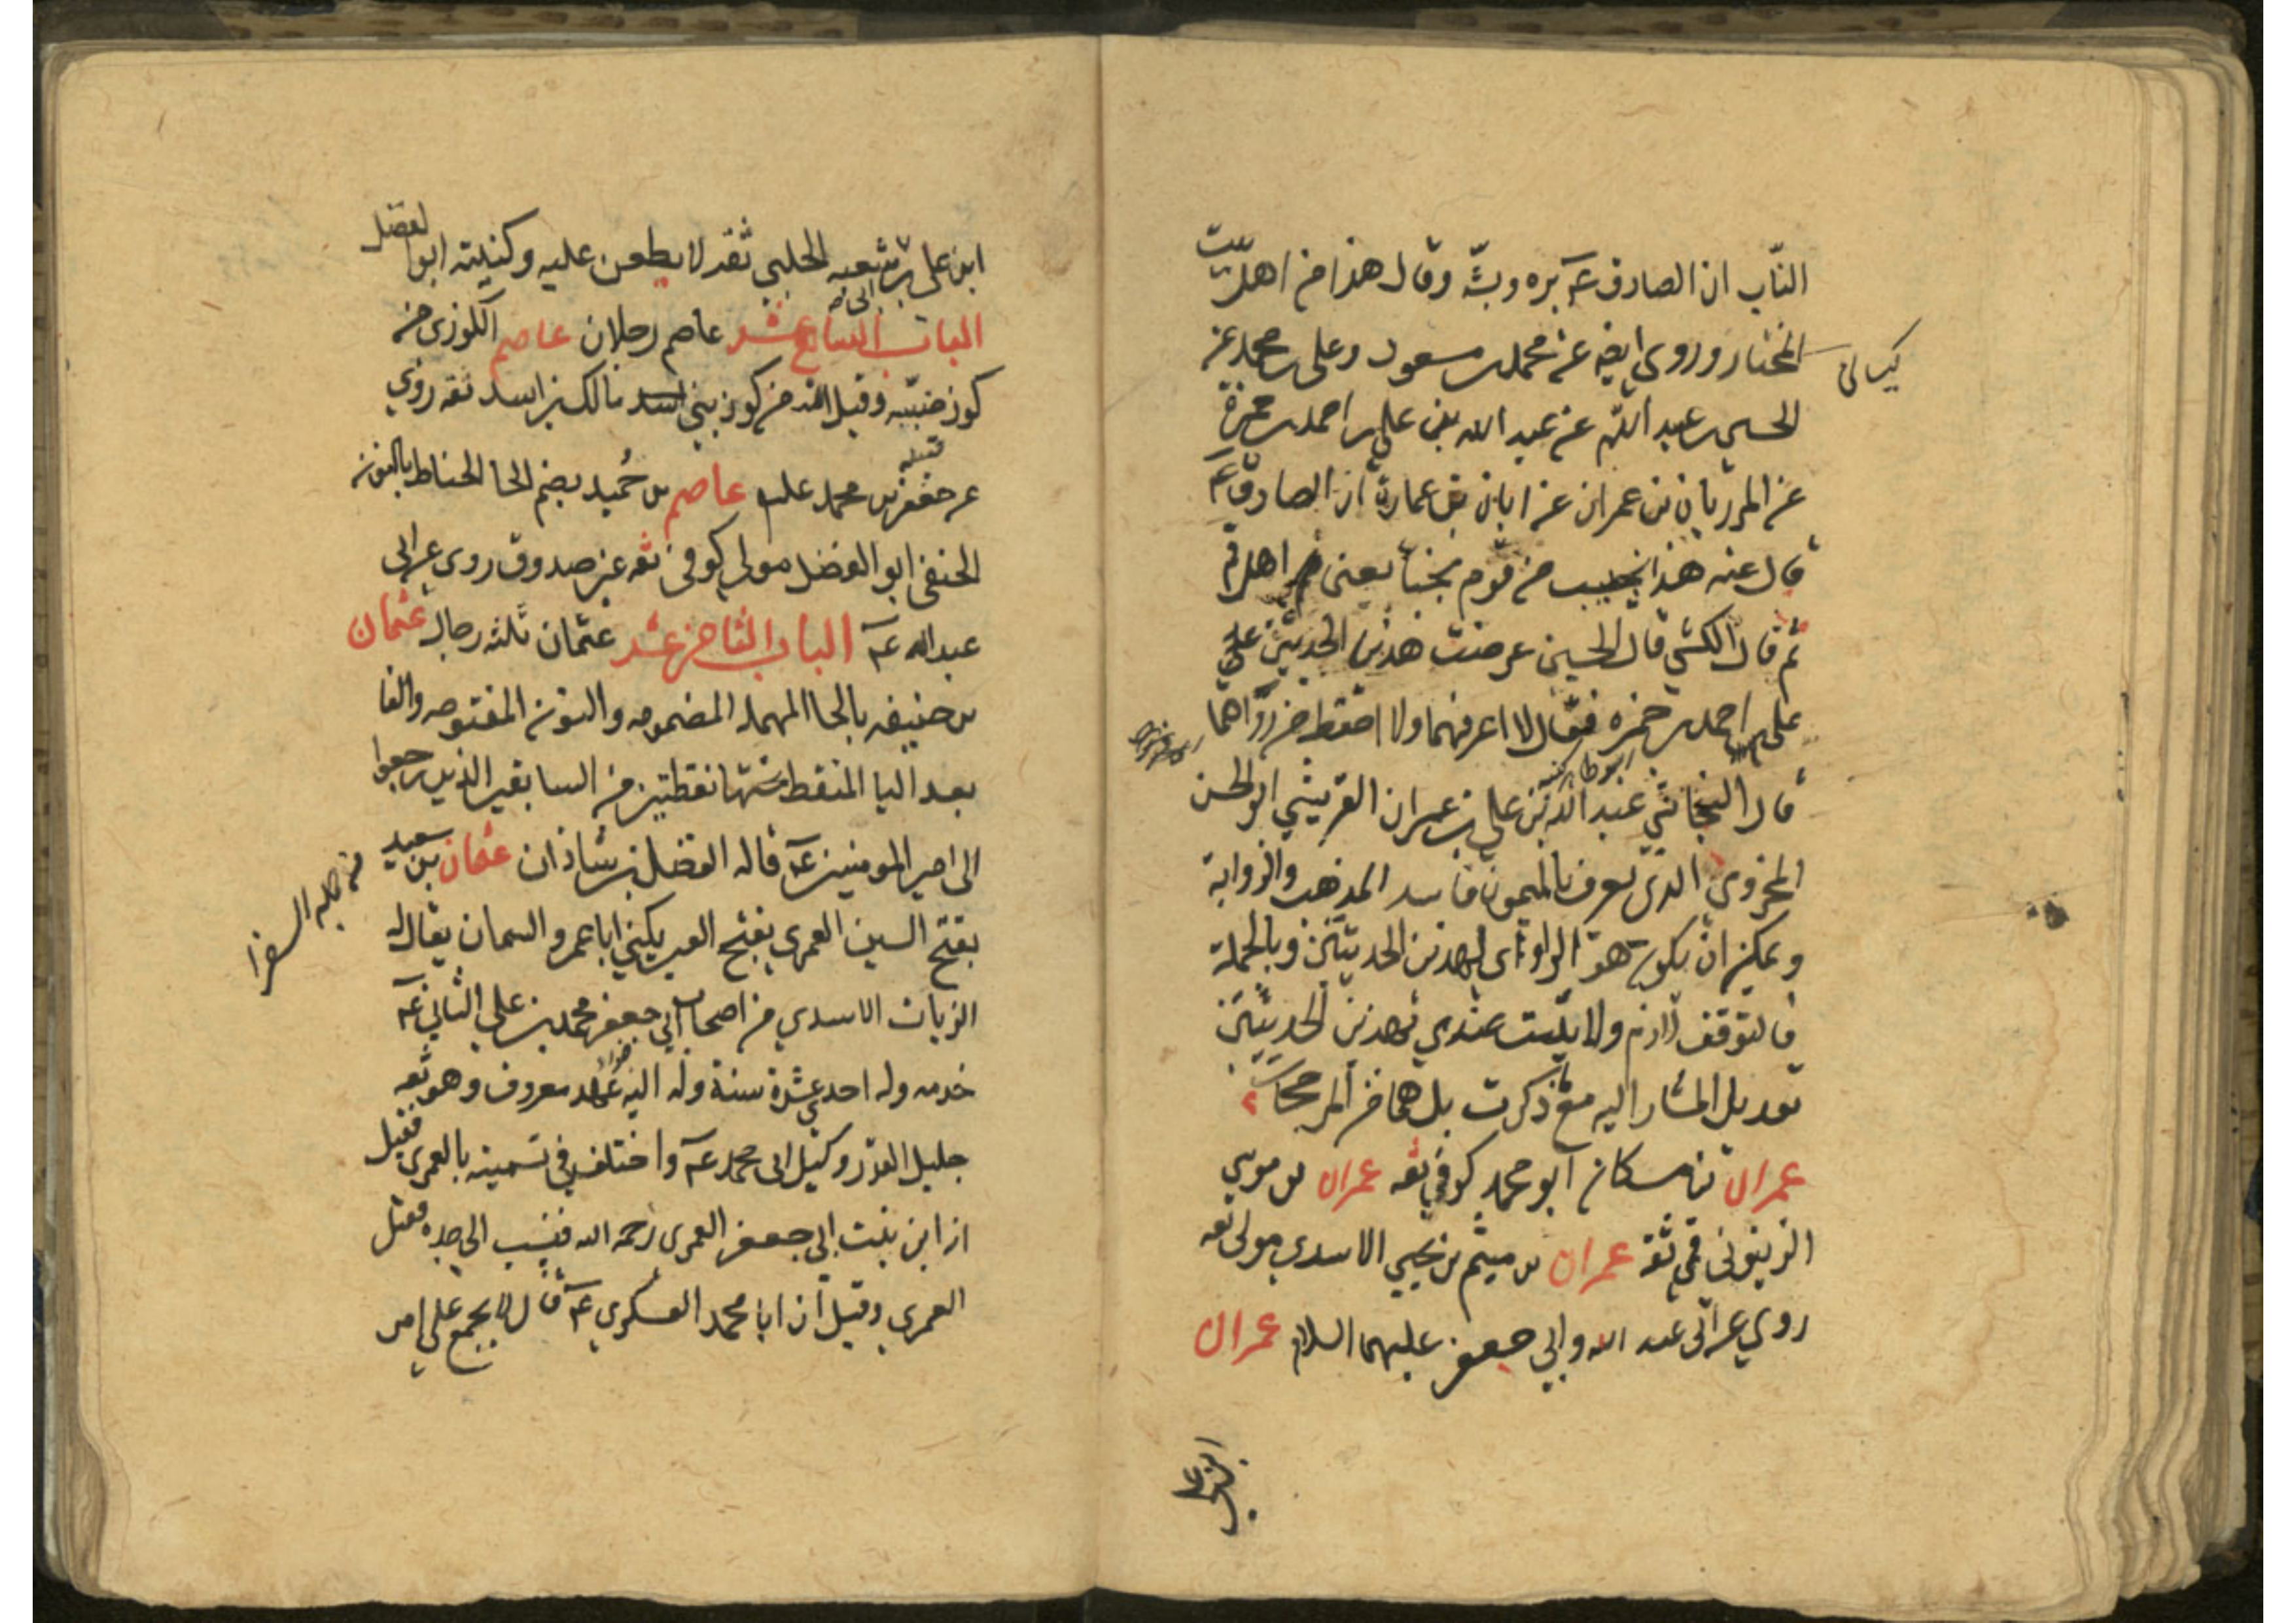 الناب ان الصادق عـ بره وبشه وقال هذا من اهل بيت
المختار وروى ايضا عن محمد بن مسعود وعلى بن محمد عن
الحسين بن عبد الله عن عبد الله بن على بن احمد بن حمزة
عن المرزبان بن عمران عن ابان بن عمارة ان الصادق عـ
قال عنه هذا نجيب من قوم نجبا يعنى من اهل قم
ثم قال الكشي قال الحسين عرضت هذين الحديثين على
على احمد بن حمزه فقال لا اعرفهما ولا احفظ من رواهما
قال النجاشي عبد الله بن على بن عمران القريشي ابو الحسن
المخزومى الذى يعرف بالميمون فاسد المذهب والرواية
ويمكن ان يكون هو الراوى لهذين الحديثين وبالجملة
فالتوقف لازم ولا يثبت عندي بهذين الحديثين
تعديل المشار اليه مع ذكرت بل هما من المرجحات
عمران بن مسكان ابو محمد كوفي ثقه عمران بن موسي
الزيتونى قمي ثقة عمران بن ميثم بن يحيي الاسدي مولى ثقه
روي عن ابى عبد الله وابي جعفر عليهما السلام عمران
ابن على
ابن على بن ابى شعبه الحلبي ثقه لا يطعن عليه وكنيته ابو الفضل
الباب السابع عشر عاصم رجلان عاصم الكوزى من
كوز ضبيه وقيل انه من كوز بنى اسد مالك بن اسد ثقه روي
عن جعفر بن محمد علـ عاصم بن حُميد بضم الحا الحناط بالنون
الحنفى ابو الفضل مولى كوفى ثقه عين صدوق روى عن ابى
عبد الله عـ الباب الثامن عشر عثمان ثلثه رجال عثمان
بن حنيف بالحا المهمله المضمومه والنون المفتوحه والفا
بعد اليا المنقطه تحتها نقطتين من السابقين الذين رجعوا
الى امير المومنين عـ قاله الفضل بن شاذان عثمان بن سعيد
بفتح السين العمرى بفتح العين يكنى ابا عمرو السمان يقال له
من جمله السفرا
الزيات الاسدي من اصحاب ابي جعفر محمد بن علي الثاني عـ
خدمه وله احدي عشرة سنة وله اليه عهد معروف وهو ثقه
جليل القدر وكيل ابى محمد عـ واختلف في تسميته بالعمرى فقيل
انه ابن بنت ابي جعفر العمرى رحمه الله فنسب الى جده فقيل
العمري وقيل ان ابا محمد العسكري عـ قال لا يجمع على امر